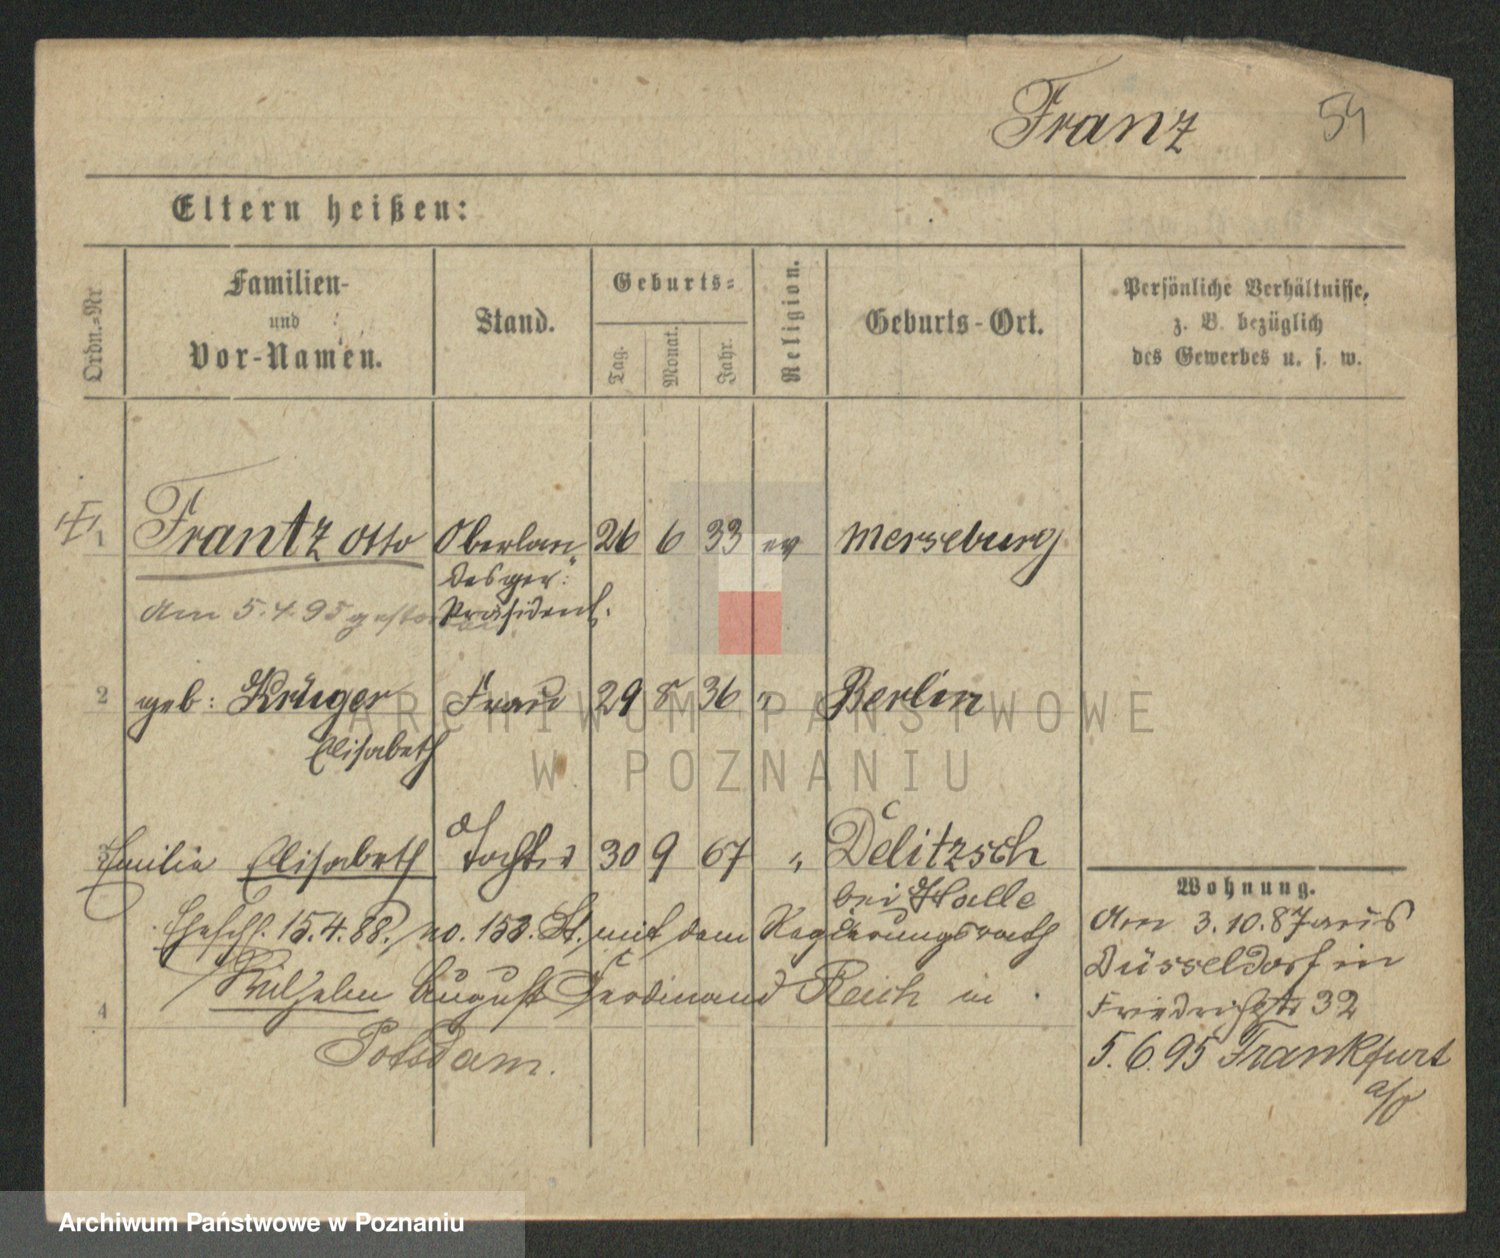 Franz 54
Eltern heißen:
Ordn.=Nr.
Familien-
und
Vor-Namen.
Stand.
Geburts=
Tag.
Monat.
Jahr.
Religion.
Geburts-Ort.
Persönliche Verhältnisse,
z. B. bezüglich
des Gewerbes u. s. w.
1 Frantz Otto Oberlan 26 6 33 ev Merseburg
desger.
Präsident.
Am 5.4.95 gestorben
2 geb: Krüger Frau 29 8 36 " Berlin
Elisabeth
3 Emilie Elisabeth Tochter 30 9 67 " Delitzsch
bei Halle
Eheschl. 15.4.88. no. 153. St. mit dem Regierungsrath
Wilhelm August Ferdinand Reich in
4
Potsdam.
Wohnung.
Am 3.10.87 aus
Düsseldorf in
Friedrichstr 32
5.6.95 Frankfurt
a/O
ARCHIWUM PAŃSTWOWE
W POZNANIU
Archiwum Państwowe w Poznaniu